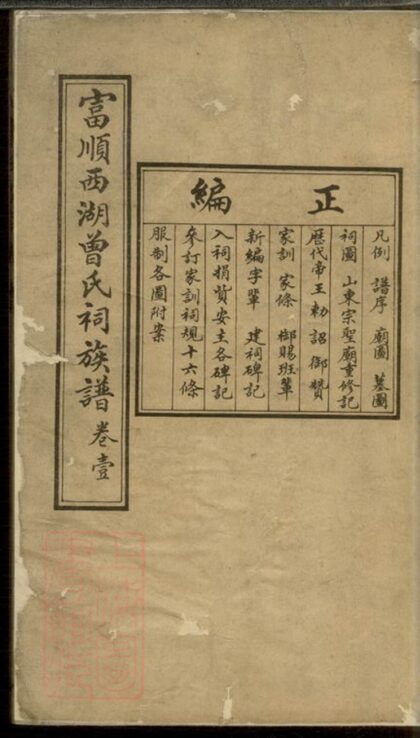 富順西湖曾氏祠族譜 卷壹
正編
凡例 譜序 廟圖 墓圖
祠圖 山東宗聖廟重修記
歷代帝王 勅詔 御贊
家訓 家條 御賜班輩
新編字輩 建祠碑記
入祠捐貲安主各碑記
參訂家訓祠規十六條
服制各圖附案